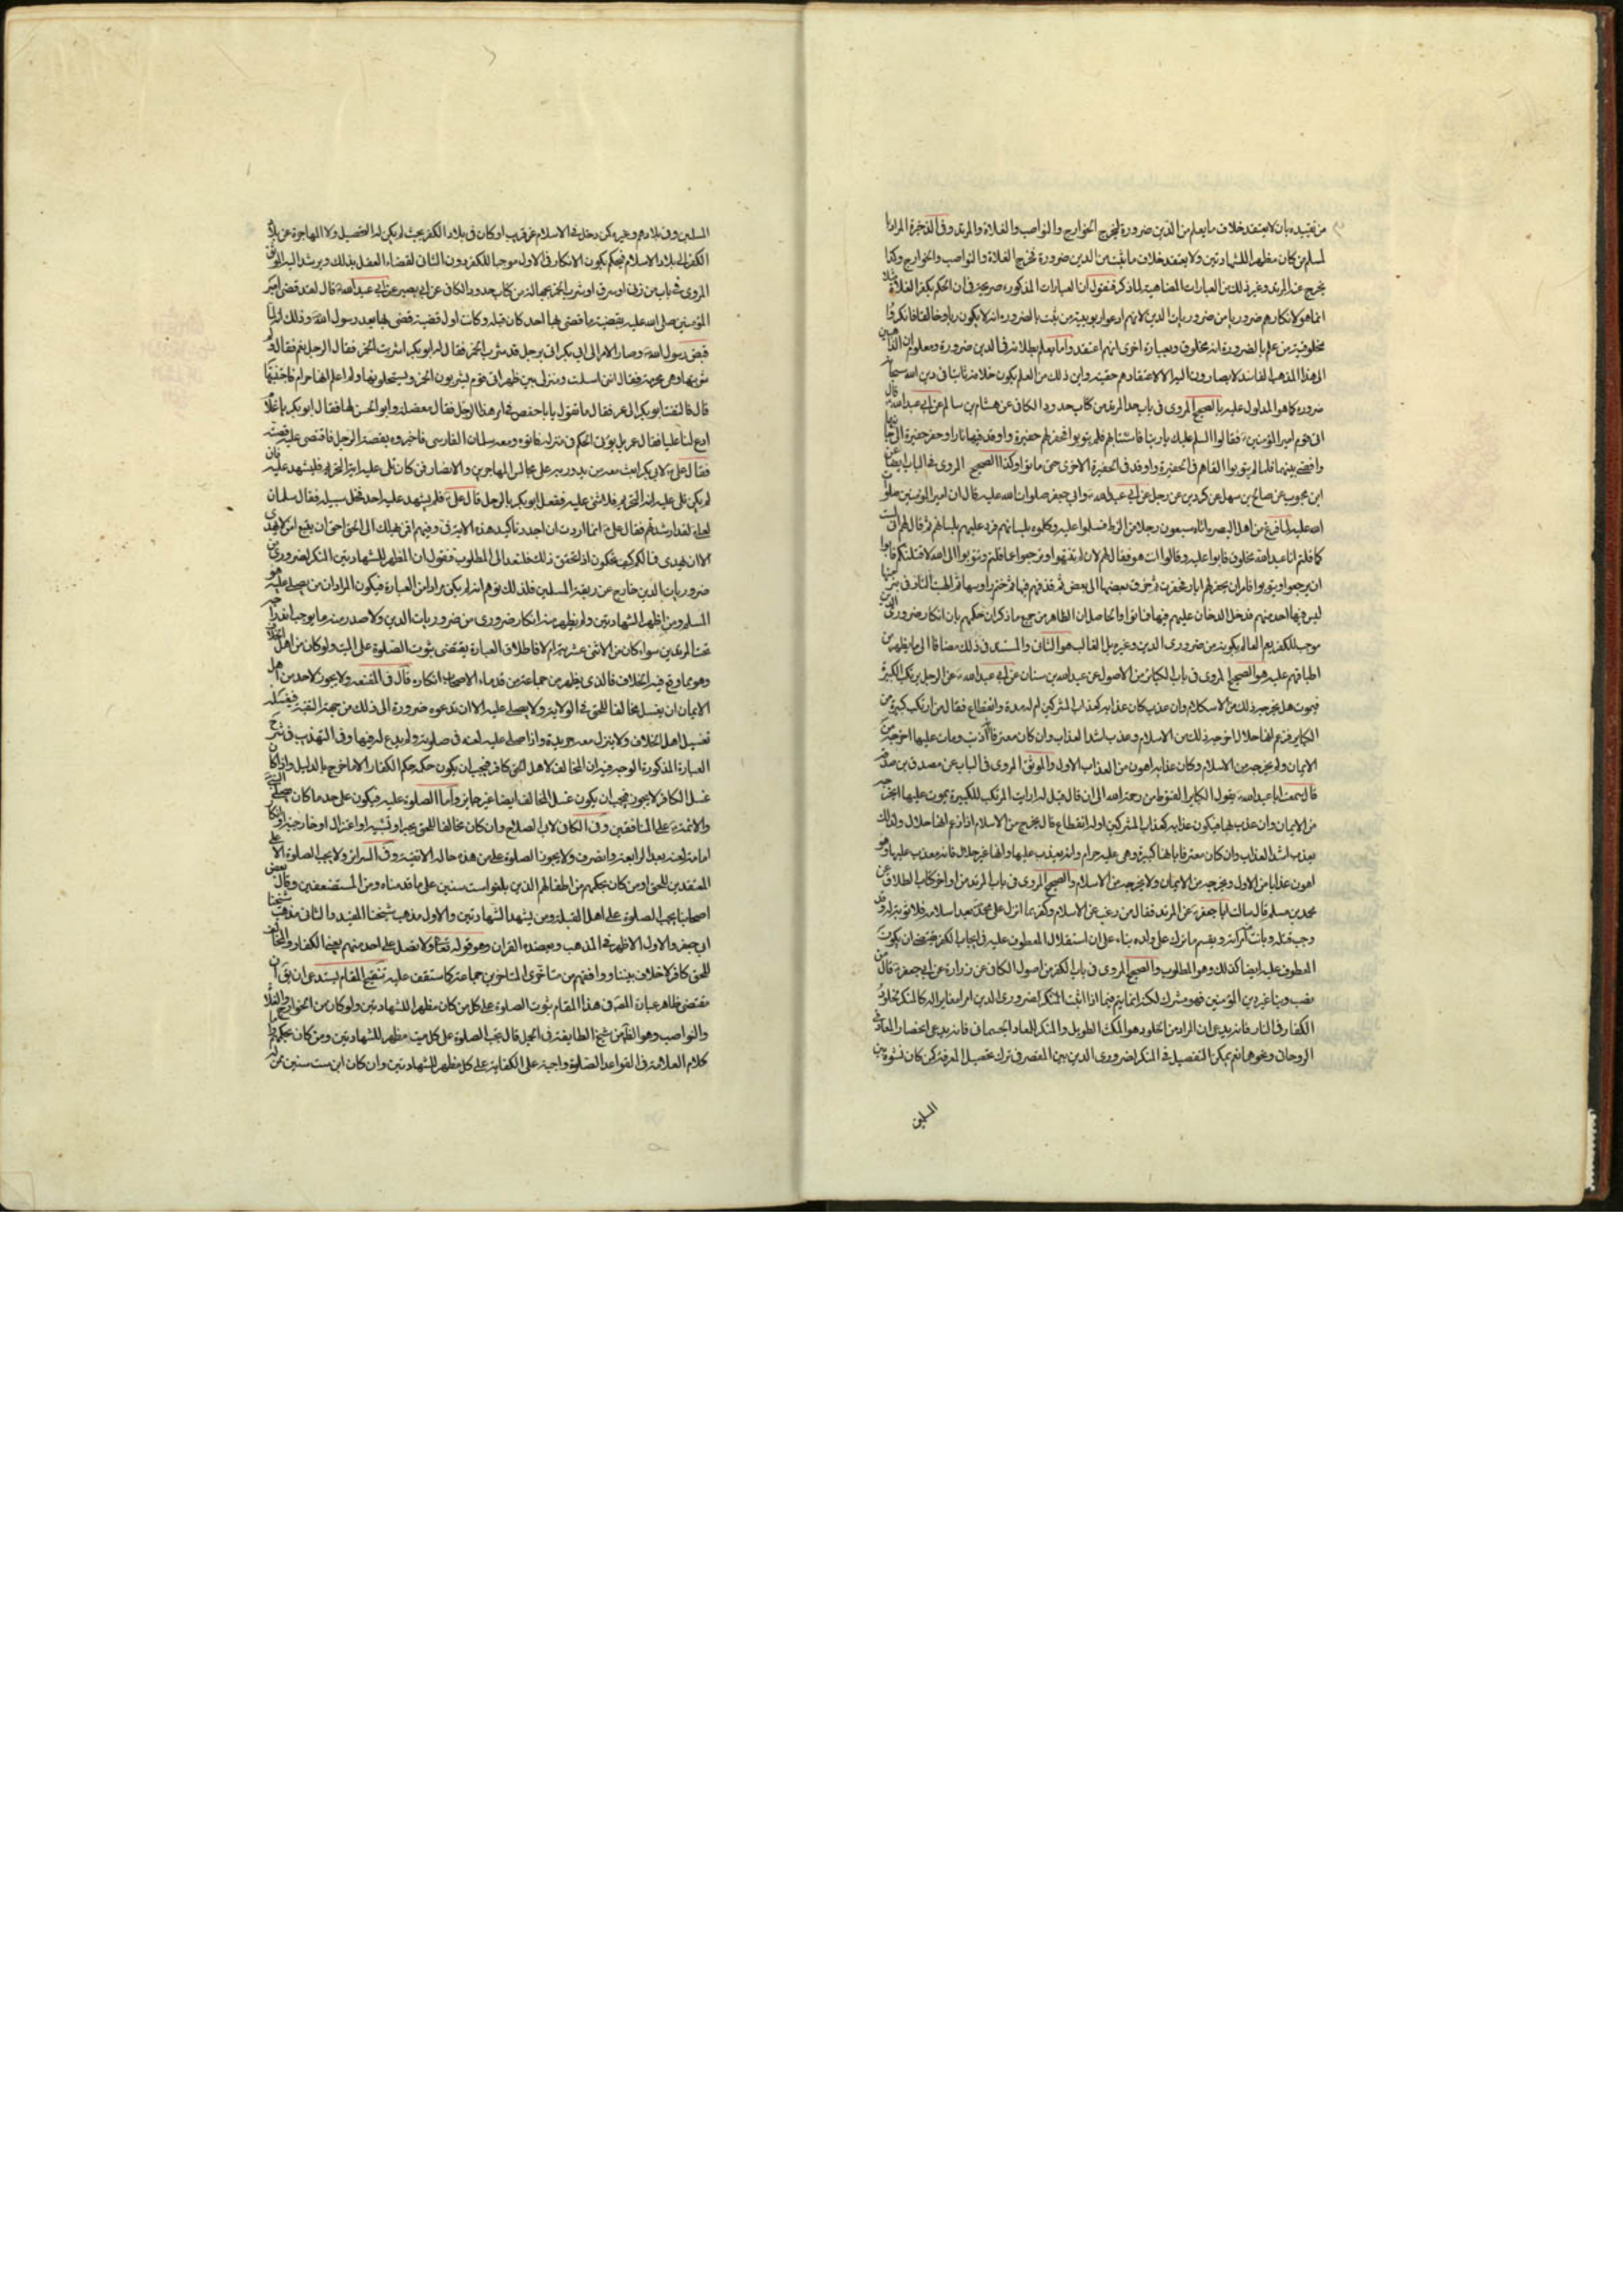 من تقييده بان لا يعتقد خلاف ما يعلم من الدين ضرورة ليخرج الخوارج والنواصب والغلاة والمرتد وفى الذخيرة المراد با
لمسلم من كان مظهرا للشهادتين ولا يعتقد خلاف ما ثبت من الدين ضرورة فخرج الغلاة والنواصب والخوارج وكذا
يخرج عنه المرتد وغير ذلك من العبارات المضاهية لما ذكر فنقول ان العبارات المذكورة صريحة فى ان الحكم بكفر الغلاة مثلا
انما هو لانكارهم ضروريا من ضروريات الدين لانهم ادعوا ربوبية من ثبت بالضرورة انه لا يكون ربا وخالقا فانكروا
مخلوقية من علم بالضرورة انه مخلوق وبعبارة اخرى انهم اعتقدوا ما يعلم بطلانه فى الدين ضرورة ومعلوم ان الذاهبين
الى هذا المذهب الفاسد لا يصارون اليه الا لاعتقادهم حقيته واين ذلك من العلم بكون خلافه ثابتا فى دين الله سبحانه
ضرورة كما هو المدلول عليه بالصحيح المروى فى باب حد المرتد من كتاب حدود الكافى عن هشام بن سالم عن ابى عبد الله قال
اتى قوم امير المؤمنين فقالوا السلم عليك يا ربنا فاستتابهم فلم يتوبوا فحفر لهم حفيرة واوقد فيها نارا وحفر حفيرة الى جانبها
وافضى بينهما فلما لم يتوبوا القاهم فى الحفيرة واوقد فى الحفيرة الاخرى حتى ماتوا وكذا الصحيح المروى فى الباب ايضا عن
ابن محبوب عن صالح بن سهل عن كردين عن رجل عن ابى عبد الله وابى جعفر صلوات الله عليه قال ان امير المؤمنين صلوات
الله عليه لما فرغ من اهل البصرة اتاه سبعون رجلا من الزط فسلموا عليه وكلموه بلسانهم فرد عليهم بلسانهم ثم قال لهم انى لست
كما قلتم انا عبد الله مخلوق فابوا عليه وقالوا انت هو فقال لهم لان لم تنتهوا وترجعوا عما قلتم وتتوبوا الى الله لاقتلنكم فابوا
ان يرجعوا ويتوبوا فامر ان يحفر لهم ابار فحفرت ثم خرق بعضها الى بعض ثم قذفهم فيها ثم خمر رؤسها ثم الهبت النار فى بئر منها
ليس فيها احد منهم فدخل الدخان عليهم فيها فماتوا والحاصل ان الظاهر من جميع ما ذكر ان حكمهم بان انكار ضرورى الدين
موجب للكفر يعم العالم بكونه من ضرورى الدين وغيره بل الغالب هو الثانى والمستند فى ذلك مضافا الى ما يظهر من
اطباقهم عليه هو الصحيح المروى فى باب الكبائر من الاصول عن عبد الله بن سنان عن ابى عبد الله عن الرجل يرتكب الكبيرة
فيموت هل يخرجه ذلك من الاسلام وان عذب كان عذابه كعذاب المشركين ام له مدة وانقطاع فقال من ارتكب كبيرة من
الكباير فزعم انها حلال اخرجه ذلك من الاسلام وعذب اشد العذاب وان كان معترفا انه اذنب ومات عليها اخرجه من
الايمان ولم يخرجه من الاسلام وكان عذابه اهون من العذاب الاول والموثق المروى فى الباب عن مصدق بن صدقة
قال سمعت ابا عبد الله يقول الكباير القنوط من رحمة الله الى ان قال قيل له ارايت المرتكب للكبيرة يموت عليها اتخرجه
من الايمان وان عذب بها فيكون عذابه كعذاب المشركين او له انقطاع قال يخرج من الاسلام اذا زعم انها حلال ولذلك
يعذب اشد العذاب وان كان معترفا بانها كبيرة وهى عليه حرام وانه يعذب عليها وانها غير حلال فانه معذب عليها وهو
اهون عذابا من الاول ويخرجه من الايمان ولا يخرجه من الاسلام والصحيح المروى فى باب المرتد من اواخر كتاب الطلاق عن
محمد بن مسلم قال سالت ابا جعفر عن المرتد فقال من رغب عن الاسلام وكفر بما انزل على محمد بعد اسلامه فلا توبة له وقد
وجب قتله وبانت امراته ويقسم ما ترك على ولده بناء على ان استقلال المعطوف عليه فى ايجاب الكفر فيقتضى ان يكون
المعطوف عليه ايضا كذلك وهو المطلوب والصحيح المروى فى باب الكفر من اصول الكافى عن زرارة عن ابى جعفر قال من
نصب دينا غير دين المؤمنين فهو مشرك لكنه انما يتم فيما اذا اثبت المنكر لضرورى الدين امرا مغايرا له كالمنكر لخلود
الكفار فى النار فانه يدعى ان المراد من الخلود هو المكث الطويل والمنكر المعاد الجسمانى فانه يدعى انحصار المعاد فى
الروحانى ونحوهما نعم يمكن التفصيل فى المنكر لضرورى الدين بين المقصر فى ترك تحصيل المعرفة كمن كان نشوه بين
المسلمين
المسلمين وفى بلادهم وغيره كمن دخل فى الاسلام عن قريب او كان فى بلاد الكفر بحيث لم يكن له التحصيل ولا المهاجرة عن بلاد
الكفر الى بلاد الاسلام فيحكم بكون الانكار فى الاول موجبا للكفر دون الثانى لقضاء العقل بذلك ويرشد اليه الموثق
المروى فى باب من زنى او سرق او شرب الخمر بجهالة من كتاب حدود الكافى عن ابى بصير عن ابى عبد الله قال لقد قضى امير
المؤمنين صلى الله عليه بقضية ما قضى بها احد كان قبله وكانت اول قضية قضى بها بعد رسول الله وذلك انه لما
قبض رسول الله وصار الامر الى ابى بكر اتى برجل قد شرب الخمر فقال له ابو بكر اشربت الخمر فقال الرجل نعم فقال لم
شربتها وهى محرمة فقال اننى اسلمت ومنزلى بين ظهرانى قوم يشربون الخمر ويستحلونها ولم اعلم انها حرام فاجتنبها
قال فالتفت ابو بكر الى عمر فقال ما تقول يا با حفص فى امر هذا الرجل فقال معضلة وابو الحسن لها فقال ابو بكر يا غلام
ادع لنا عليا فقال عمر بل يؤتى الحكم فى منزله فاتوه ومعه سلمان الفارسى فاخبروه بقصة الرجل فاقتص عليه قصته
فقال على لابى بكر ابعث معه من يدور به على مجالس المهاجرين والانصار فمن كان تلى عليه اية التحريم فليشهد عليه فان
لم يكن تلى عليه اية التحريم فلا شئ عليه ففعل ابو بكر بالرجل قال على فلم يشهد عليه احد فخلى سبيله فقال سلمان
لعلى لقد ارشدتهم فقال على انما اردت ان اجدد تاكيد هذه الاية فى وفيهم افمن يهدى الى الحق احق ان يتبع امن لا يهدى
الا ان يهدى فما لكم كيف تحكمون اذا تحقق ذلك فلنعد الى المطلوب فنقول ان المظهر للشهادتين المنكر لضرورى من
ضروريات الدين خارج عن ربقة المسلمين فلذلك توهم انه لم يكن مرادا من العبارة فيكون المراد ان من يصلى عليه هو
المسلم ومن اظهر الشهادتين ولم يظهر منه انكار ضرورى من ضروريات الدين ولا صدر منه ما يوجب اندراجه
تحت المرتدين سواء كان من الاثنى عشرية ام لا فاطلاق العبارة يقتضى ثبوت الصلوة على الميت ولو كان من اهل الخلاف
وهو مما وقع فيه الخلاف فالذى يظهر من جماعة من قدماء الاصحاب انكاره قال فى المقنعة ولا يجوز لاحد من اهل
الايمان ان يغسل مخالفا للحق فى الولاية ولا يصلى عليه الا ان تدعوه ضرورة الى ذلك من جهة التقية فيغسله
تغسيل اهل الخلاف ولا يترك معه جريدة واذا صلى عليه لعنه فى صلوته ولم يدع له فيها وفى التهذيب فى شرح
العبارة المذكورة الوجه فيه ان المخالف لاهل الحق كافر فيجب ان يكون حكمه حكم الكفار الا ما خرج بالدليل واذا كان
غسل الكافر لا يجوز فيجب ان يكون غسل المخالف ايضا غير جايز واما الصلوة عليه فيكون على حد ما كان يصلى النبى
والائمة على المنافقين وفى الكافى لابى الصلاح وان كان مخالفا للحق بجبر او تشبيه او اعتزال او خارجية او انكار
امامة لعنه بعد الرابعة وانصرف ولا يجوز الصلوة على من هذه حاله الا تقية وفى السرائر ولا يجب الصلوة الا على
المعتقدين للحق او من كان بحكمهم من اطفالهم الذين بلغوا ست سنين على ما قدمناه ومن المستضعفين وقال بعض
اصحابنا يجب الصلوة على اهل القبلة ومن يشهد الشهادتين والاول مذهب شيخنا المفيد والثانى مذهب شيخنا
ابى جعفر والاول الاظهر فى المذهب ويعضده القران وهو قوله تعالى ولا تصل على احد منهم يعنى الكفار والمخالف
للحق كافر بلا خلاف بيننا ووافقهم من متاخرى المتاخرين جماعة كما ستقف عليه تنقيح المقام يستدعى ان يق ان
مقتضى ظاهر عبارة المصنف فى هذا المقام ثبوت الصلوة على كل من كان مظهرا للشهادتين ولو كان من الخوارج والغلاة
والنواصب وهو الظاهر من شيخ الطايفة فى الجمل قال تجب الصلوة على كل ميت مظهر للشهادتين ومن كان بحكمهم
كلام العلامة فى القواعد الصلوة واجبة على الكفاية على كل مظهر للشهادتين وان كان ابن ست سنين ممن له